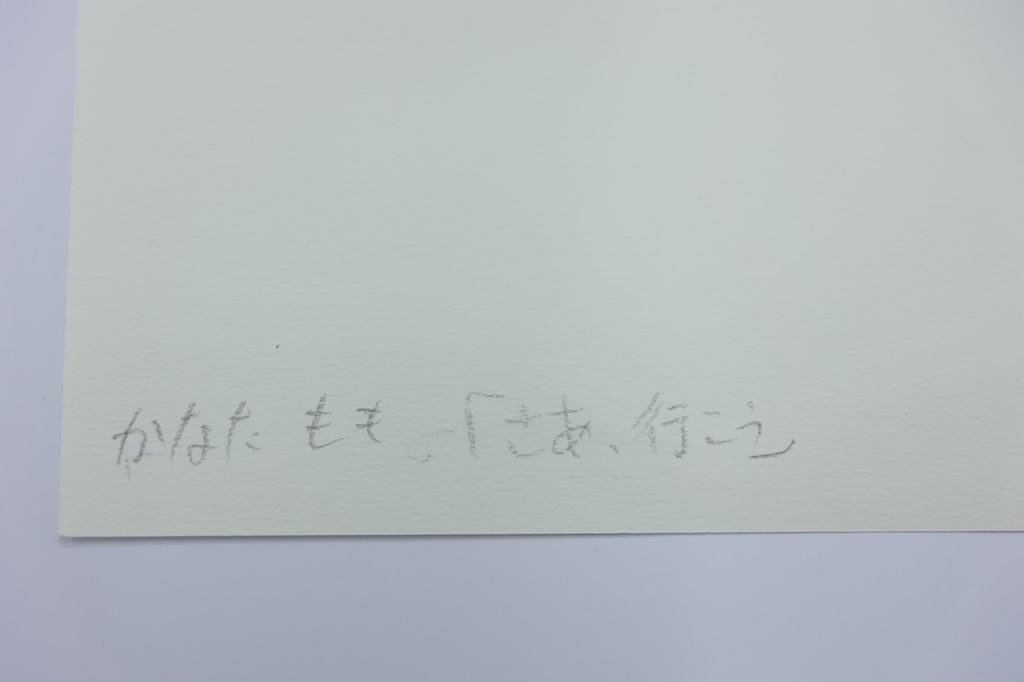 かなた もも 「さあ、行こう」